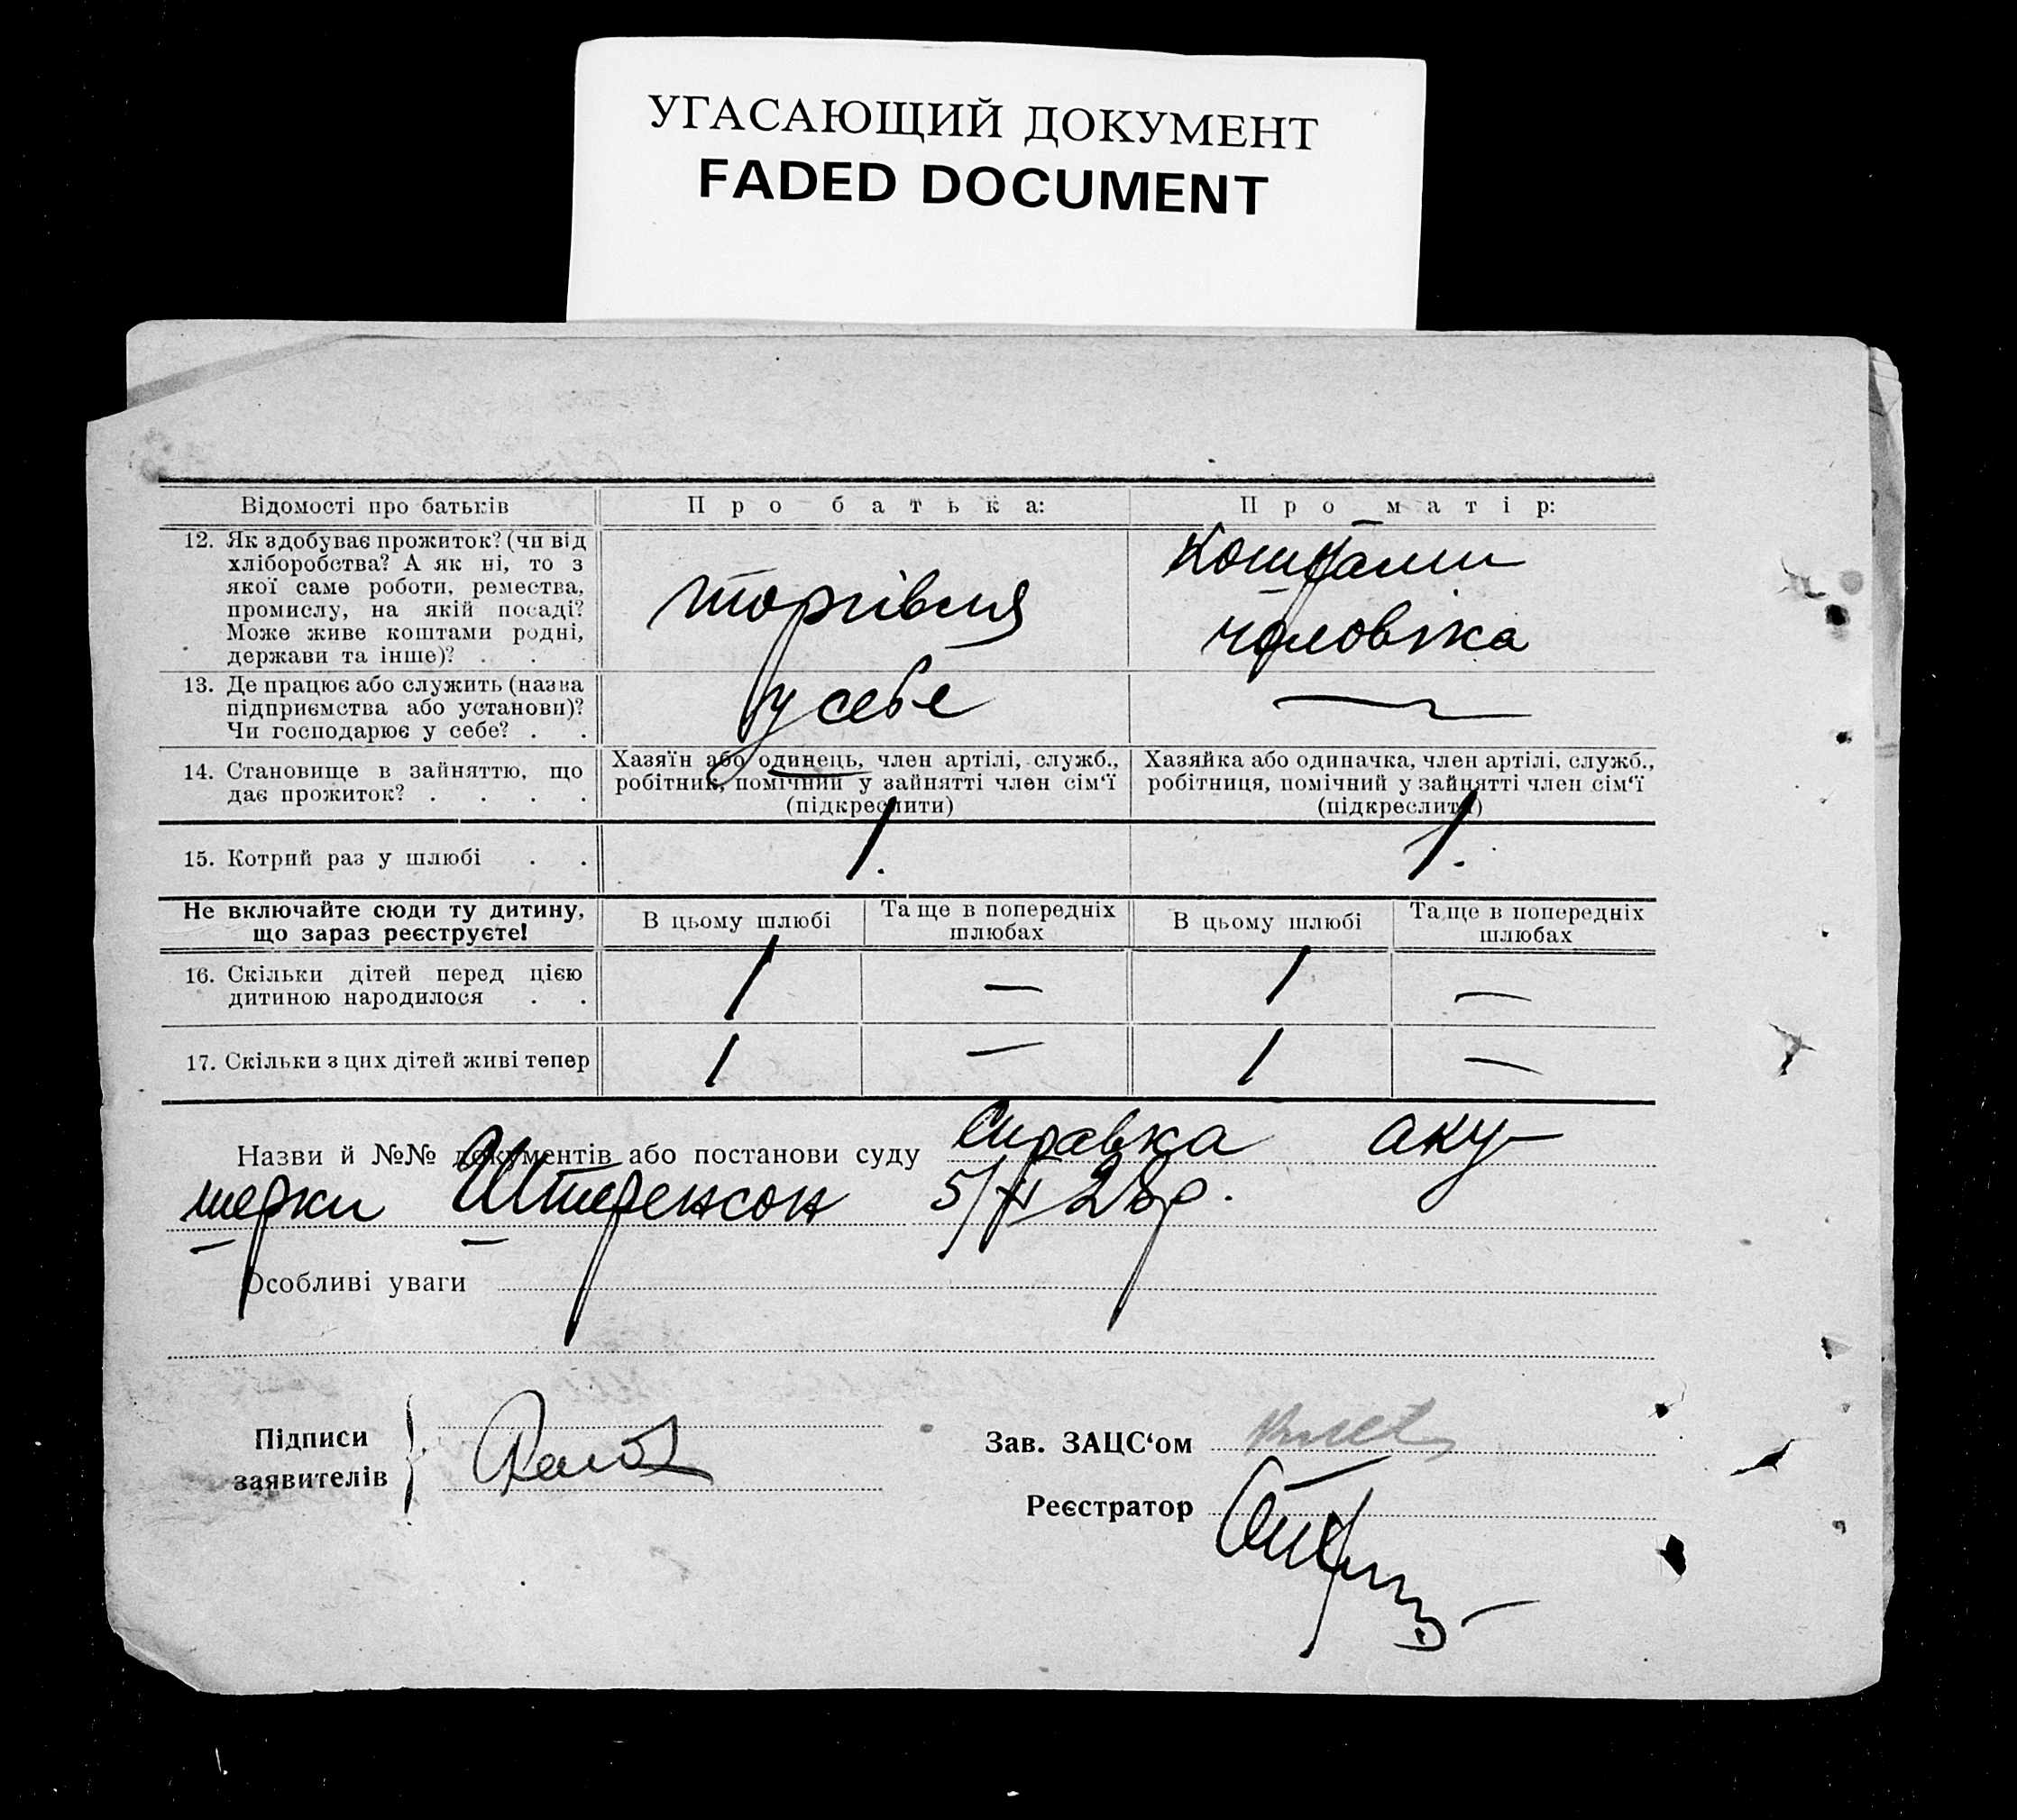 УГАСАЮЩИЙ ДОКУМЕНТ
FADED DOCUMENT
Відомості про батьків
Про батька:
Про матір:
12. Як здобуває прожиток? (чи від
хліборобства? А як ні, то з
якої саме роботи, ремества,
промислу, на якій посаді?
Може живе коштами родні,
держави та інше)? . .
торгівля
коштами
чоловіка
13. Де працює або служить (назва
підприємства або установи)?
Чи господарює у себе? . .
у себе
—
14. Становище в зайняттю, що
дає прожиток? . . . .
Хазяїн або одинець, член артілі, служб.,
робітник, помічний у зайнятті член сім‘ї
(підкреслити)
Хазяйка або одиначка, член артілі, служб.,
робітниця, помічний у зайнятті член сім‘ї
(підкреслити)
15. Котрий раз у шлюбі . .
1.
1.
Не включайте сюди ту дитину,
що зараз реєструєте!
В цьому шлюбі
Та ще в попередніх
шлюбах
В цьому шлюбі
Та ще в попередніх
шлюбах
16. Скільки дітей перед цією
дитиною народилося . .
1 — 1 —
17. Скільки з цих дітей живі тепер
1 — 1 —
Назви й №№ документів або постанови суду Справка аку-
шерки Штеренсон 5/ 28р.
Особливі уваги
Підписи
заявителів
Зав. ЗАЦС‘ом
Реєстратор